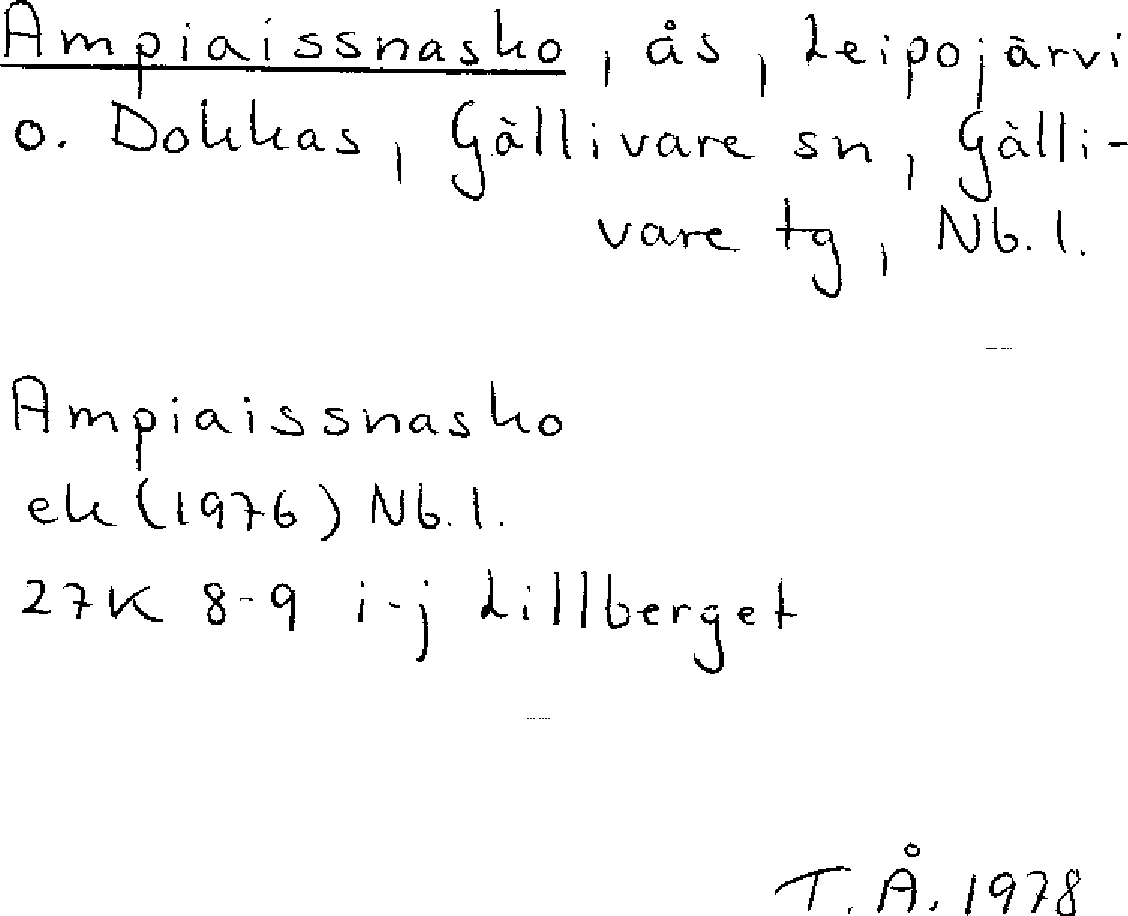 Ampiaissnasko, ås, Leipojärvi
o. Dokkas, Gällivare sn, Gälli-
vare tg, Nb. l.
Ampiaissnasko
ek (1976) Nb. l.
27K 8-9 i-j Lillberget
T. Å. 1978